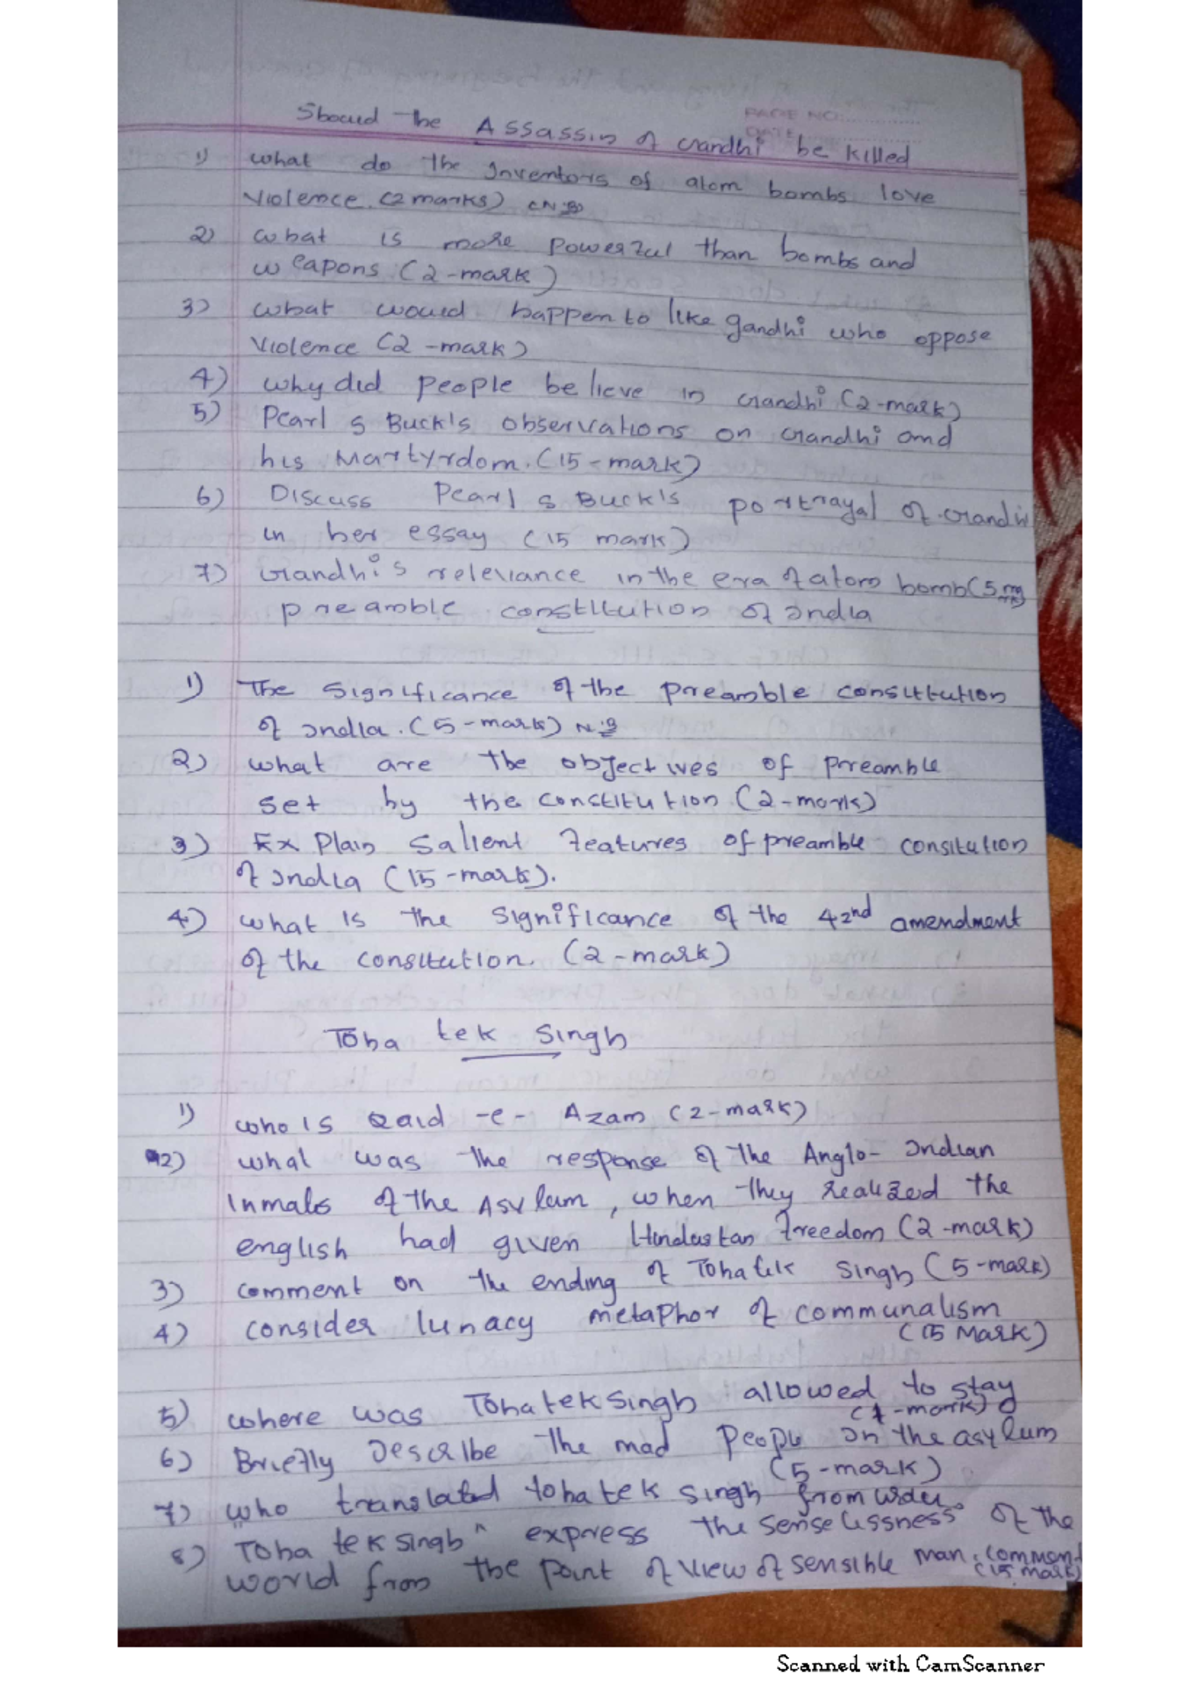 PAGE NO.
DATE
Should the Assassin of Gandhi be killed
1) What do the Inventors of atom bombs love
Violence. (2 marks)
2) What is more powerful than bombs and
weapons. (2-mark)
3) What would happen to like gandhi who oppose
Violence (2-mark)
4) Why did people believe in Gandhi (2-mark)
5) Pearl S Buck's observations on Gandhi and
his Martyrdom. (15-mark)
6) Discuss Pearl S Buck's portrayal of Gandhi
in her essay (15 mark)
7) Gandhi's relevance in the era of atom bomb (5 mark
preamble constitution of India
1) The significance of the preamble consitution
of India. (5-mark)
2) What are the objectives of preamble
set by the constitution (2-mark)
3) Explain salient features of preamble consitution
of India (15-mark).
4) What is the significance of the 42nd amendment
of the consitution. (2-mark)
Toba tek singh
1) Who is Qaid-e-Azam (2-mark)
2) What was the response of the Anglo-Indian
Inmats of the Asylum, when they realized the
english had given Hindustan freedom (2-mark)
3) comment on the ending of Toba tek singh (5-mark)
4) consider lunacy metaphor of communalism
(15 Mark)
5) Where was Toba tek singh allowed to stay
(1-mark)
6) Briefly Describe the mad people in the asylum
(5-mark)
7) Who translated toba tek singh from urdu.
8) Toba tek singh" express the senselessness of the
world from the point of view of sensible man. comment
(15 mark)
Scanned with CamScanner